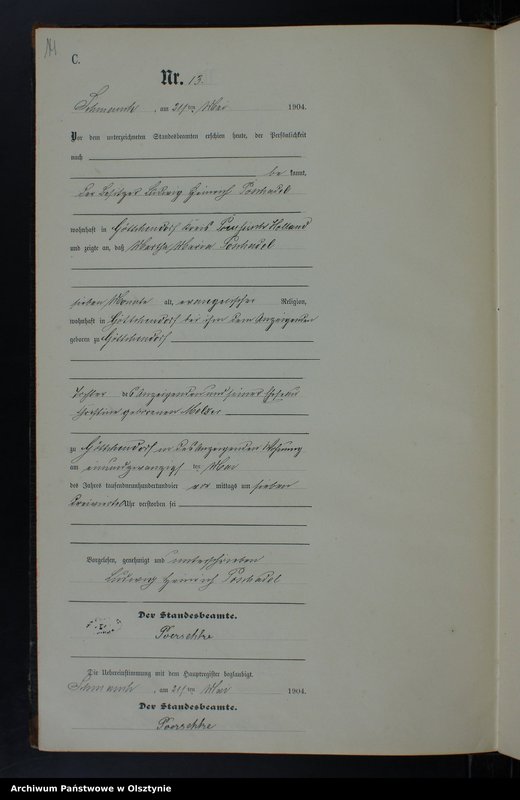 C.
Nr. 13.
am 21ten Mai 1904.
Vor dem unterzeichneten Standesbeamten erschien heute, der Persönlichkeit
nach
be kannt,
der Besitzer Ludwig Heinrich
wohnhaft in Göttchendorf Kreis Preussisch Holland
und zeigte an, daß Martha Maria
sieben Monate alt, evangelischer Religion,
wohnhaft in Göttchendorf bei ihm dem Anzeigenden
geboren zu Göttchendorf
Tochter des Anzeigenden und seiner Ehefrau
Christine geborenen Melzer
zu Göttchendorf in des Anzeigenden Wohnung
am einundzwanzigsten Mai
des Jahres tausendneunhundertundvier vor mittags um sieben
dreiviertel Uhr verstorben sei
Vorgelesen, genehmigt und unterschrieben
Ludwig Heinrich
Der Standesbeamte.
Poerschke
Die Uebereinstimmung mit dem Hauptregister beglaubigt.
am 21ten Mai 1904.
Der Standesbeamte.
Poerschke
Archiwum Państwowe w Olsztynie